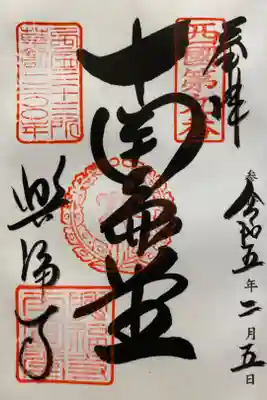 奉拝
西國第九番
令和五年二月五日
南圓堂
西国三十三所
草創一三〇〇年
興福寺